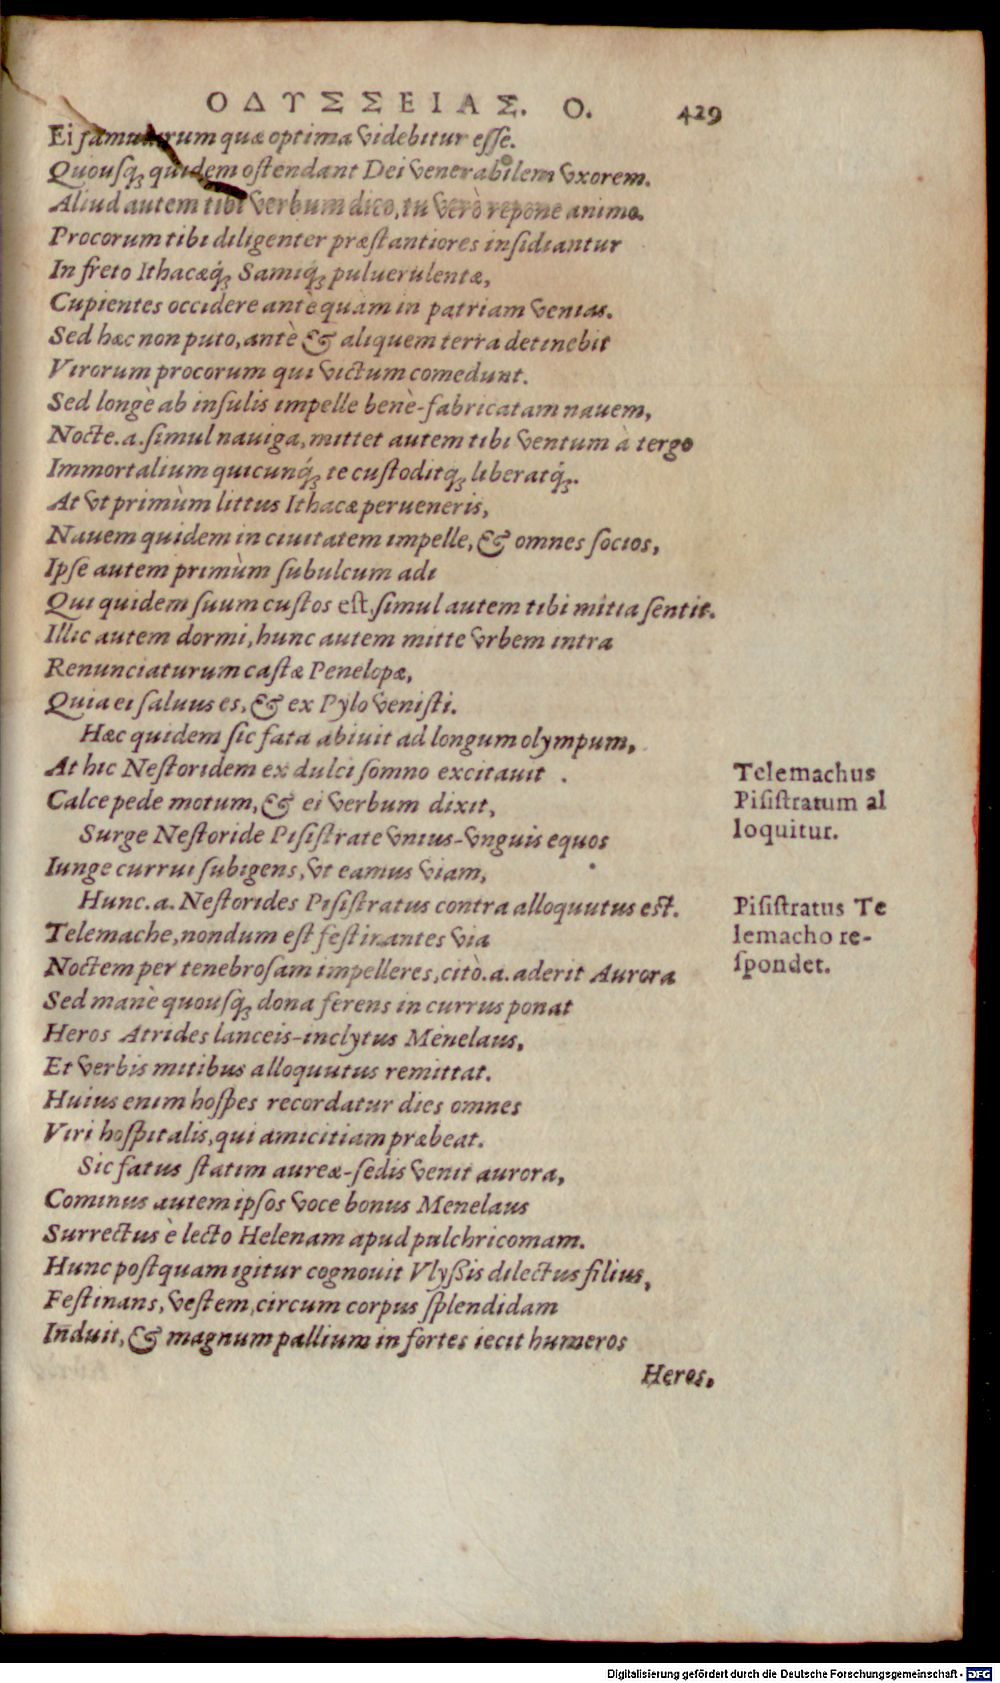 ΟΔΥΣΣΕΙΑΣ. Ο. 429
Ei famularum quæ optima videbitur esse.
Quousq; quidem ostendant Dei venerabilem vxorem.
Aliud autem tibi verbum dico, tu verò repone animo.
Procorum tibi diligenter præstantiores insidiantur
In freto Ithacæq́; Samiq́; puluerulentæ,
Cupientes occidere antè quàm in patriam venias.
Sed hæc non puto, antè & aliquem terra detinebit
Virorum procorum qui victum comedunt.
Sed longè ab insulis impelle benè-fabricatam nauem,
Nocte.a.simul nauiga, mittet autem tibi ventum à tergo
Immortalium quicunq́; te custoditq́; liberatq́;.
At vt primùm littus Ithacæ perueneris,
Nauem quidem in ciuitatem impelle, & omnes socios,
Ipse autem primùm subulcum adi
Qui quidem suum custos est, simul autem tibi mitia sentit.
Illic autem dormi, hunc autem mitte vrbem intra
Renunciaturum castæ Penelopæ,
Quia ei saluus es, & ex Pylo venisti.
Hæc quidem sic fata abiuit ad longum olympum,
At hic Nestoridem ex dulci somno excitauit .
Calce pede motum, & ei verbum dixit,
Telemachus
Pisistratum al
loquitur.
Surge Nestoride Pisistrate vnius-vnguis equos
Iunge currui subigens, vt eamus viam,
Hunc.a. Nestorides Pisistratus contra alloquutus est.
Pisistratus Te
lemacho re-
spondet.
Telemache, nondum est festinantes via
Noctem per tenebrosam impelleres, citò.a.aderit Aurora
Sed manè quousq; dona ferens in currus ponat
Heros Atrides lanceis-inclytus Menelaus,
Et verbis mitibus alloquutus remittat.
Huius enim hospes recordatur dies omnes
Viri hospitalis, qui amicitiam præbeat.
Sic fatus statim aureæ-sedis venit aurora,
Cominus autem ipsos voce bonus Menelaus
Surrectus è lecto Helenam apud pulchricomam.
Hunc postquam igitur cognouit Vlyssis dilectus filius,
Festinans, vestem circum corpus splendidam
Induit, & magnum pallium in fortes iecit humeros
Heros.
Digitalisierung gefördert durch die Deutsche Forschungsgemeinschaft - DFG